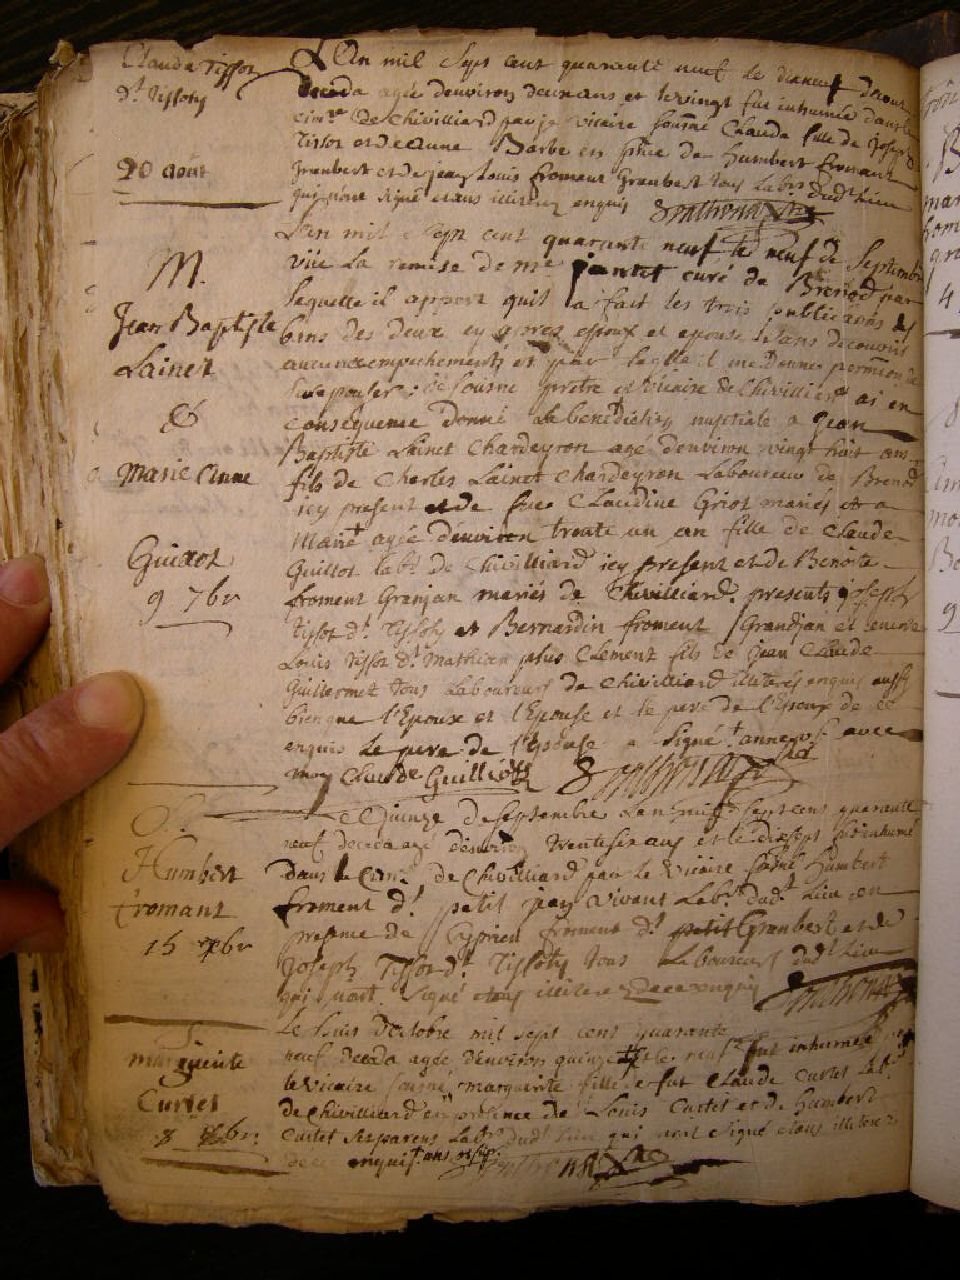 Clauda Tissot
dt Tissoty
20 août
L'An mil sept cent quarante neuf le dixneuf daout
deceda agée denviron deux ans et le vingt fut inhumée dans le
cimre de Chivilliard par je vicaire soussné Clauda fille de joseph
Tissot et de anne Barbe en pnce de humbert fromant
Granbert et de jean Louis froment Granbert tous labrs dud lieu
qui n'ont signé etans illiteres enquis
L'an mil sept cent quarante neuf le neuf de Septembre
vüe La remise de mre jantet curé de Brenod par
laquelle il appert quil a fait les trois publications des
bans des deux cy apres epoux et epouse sans decouvrir
aucun empechements et par laquelle il me donne permion de
les epouser; je sousné prêtre et vicaire de Chivilliard ai en
consequence donné la benediction nuptiale a Jean
Baptiste Lainet Chardeyron agé denviron vingt huit ans
fils de Charles Lainet Chardeyron Laboureur de Brenod
icy present et de fue Claudine Griot mariés et a
Marie agée denviron trente un an fille de Claude
Guillot labr de Chivilliard icy present et de Benoite
froment Granjan mariés de Chivilliard presents joseph
Tissot dt Tissoty et Bernardin froment Grandjan et encore
Louis Tissot dt Mathian plus Clement fils de jean Claude
Guillermet tous Laboureurs de Chivilliard illiteres enquis aussy
bien que l'Epoux et l'Epouse et le pere de l'Epoux de ce
enquis Le pere de l'Epouse a signé avec
moy Claude Guilliot
M.
Jean Baptiste
Lainet
&
Marie Anne
Guillot
9 7br
Le Quinze de Septembre Lan mil sept cent quarante
neuf deceda agé denviron trente six ans et le dixsept fut inhumé
dans le cimre de Chivilliard par le Vicaire sousné Humbert
froment dt petit jean vivant Labr dudt Lieu en
presence de Cyprien froment dt Granbert et de
Joseph Tissot dt Tissoty tous Laboureurs dudt Lieu
qui n'ont signé etans illiteres de ce enquis
S.
Humbert
fromant
15 7br
Le huit d'octobre mil sept cent quarante
neuf deceda agée denviron quinze et le neuf fut inhumée pr
le vicaire sousné marguerite fille de fut Claude Curtet labr
de Chivilliard en presence de Louis Curtet et de Humbert
Curtet ses parens Labrs dudt lieu qui n'ont signé etans illiteres
de ce enquis
S.
marguerite
Curtet
8 8br.